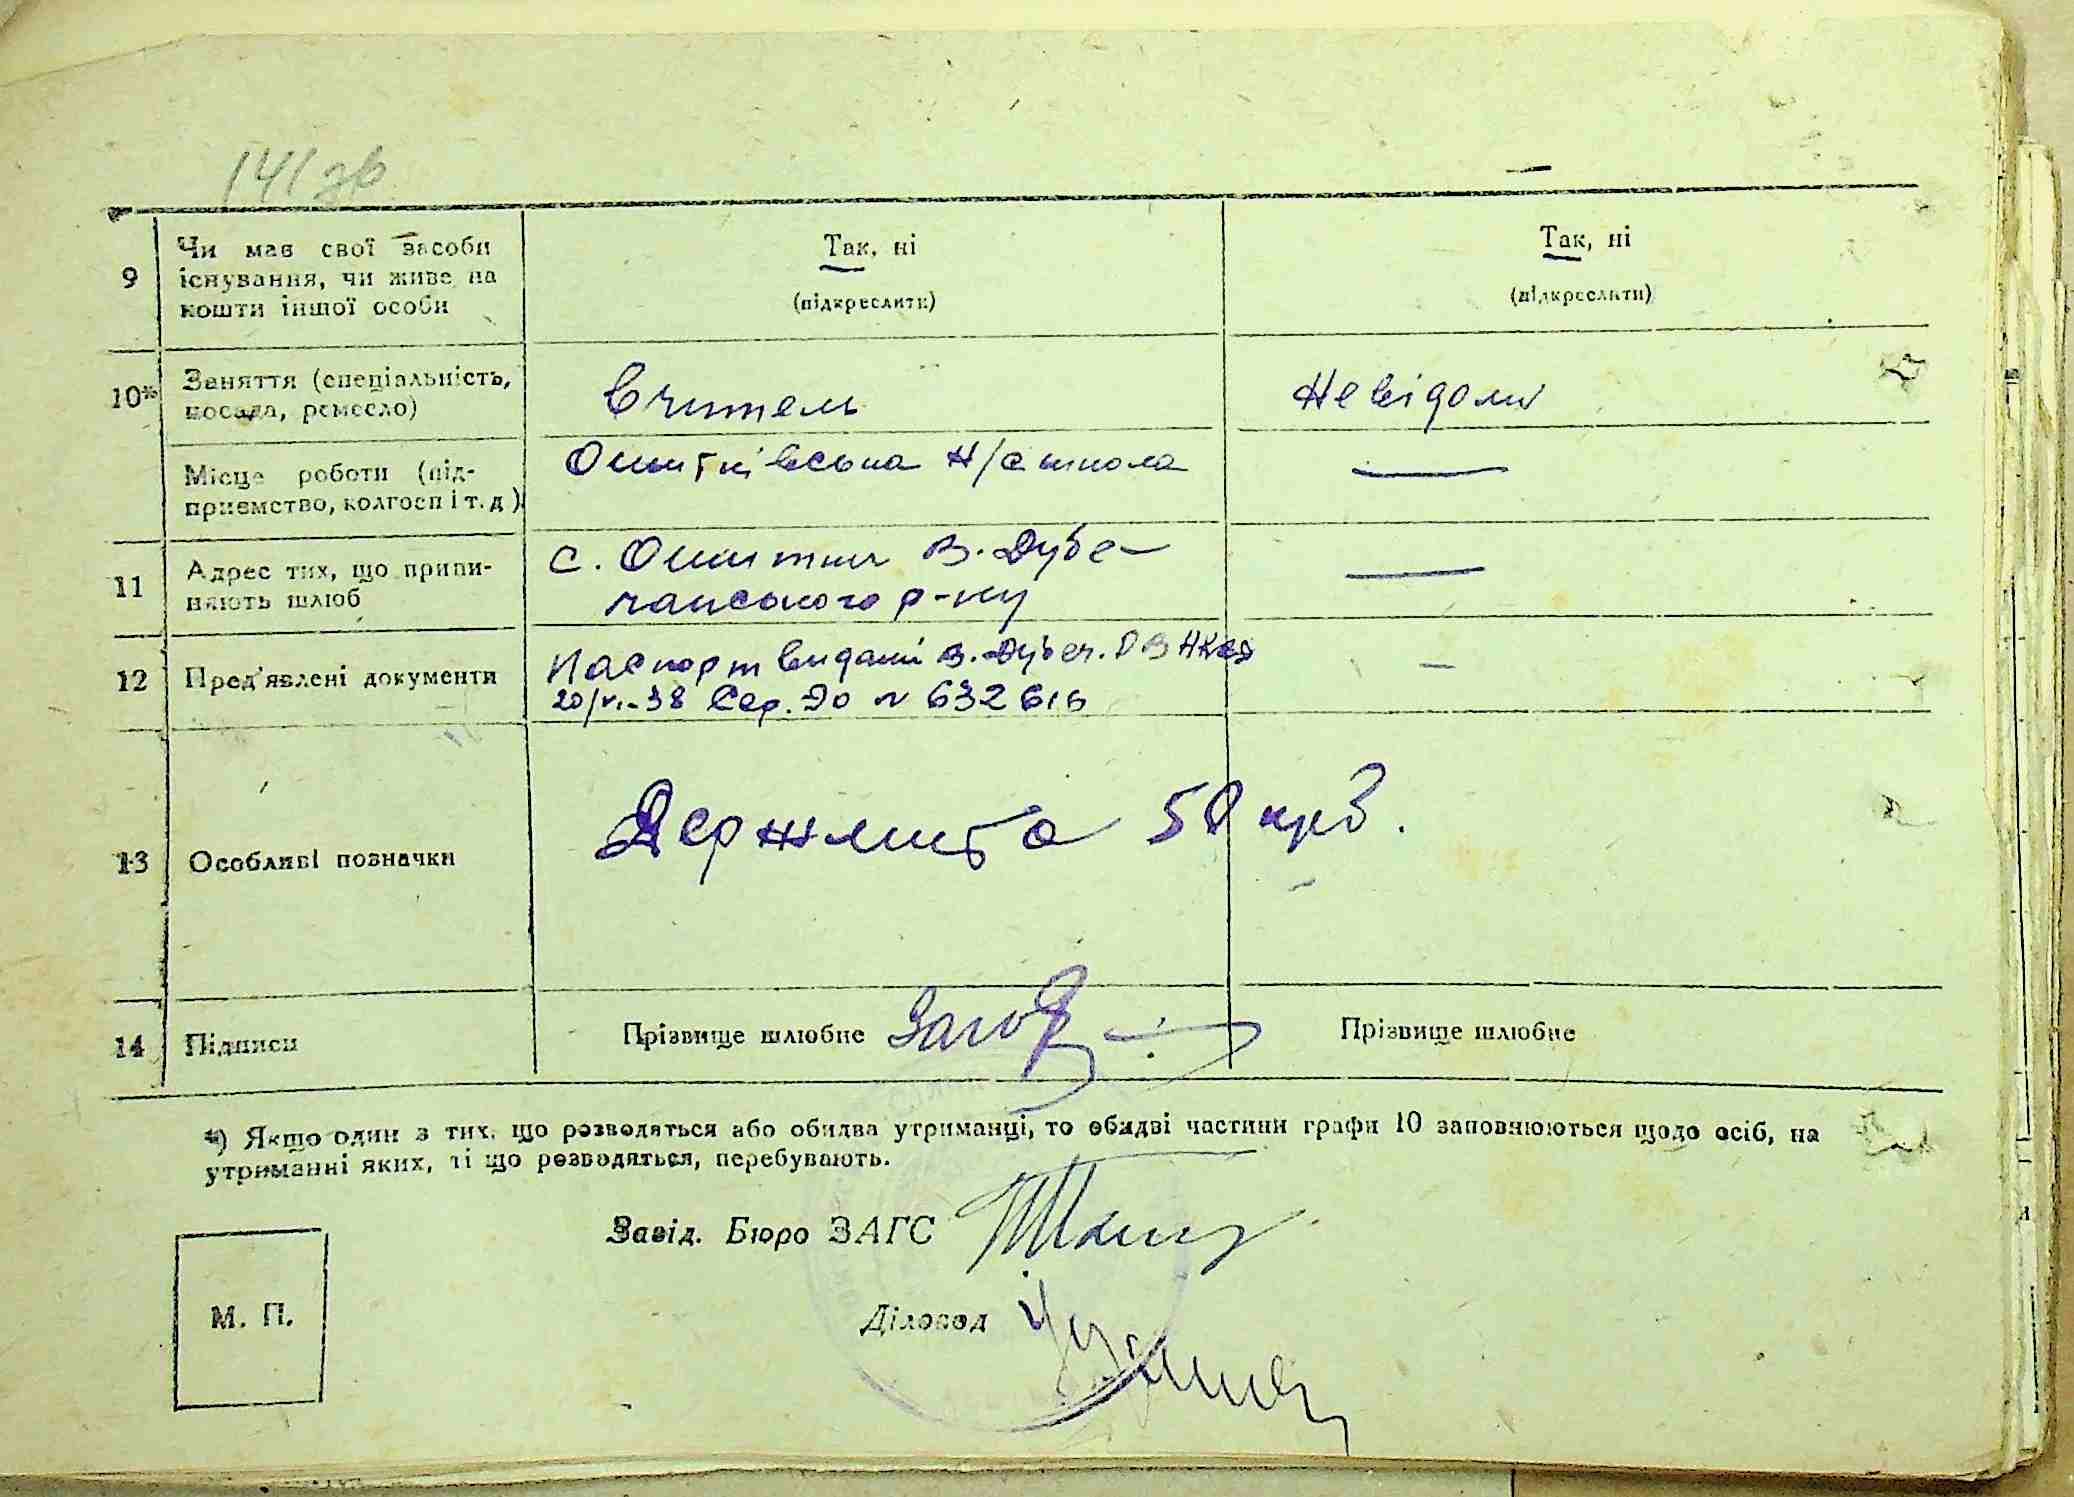 141 зв
9 Чи має свої засоби існування, чи живе на кошти іншої особи
Так, ні
(підкреслити)
Так, ні
(підкреслити)
10* Заняття (спеціальність, посада, ремесло)
Вчитель
Невідомі
Місце роботи (підприємство, колгосп і т. д.)
Ошитківська н/с школа
—
11 Адрес тих, що припиняють шлюб
с. Ошитки В. Дубечанського р-ну
—
12 Пред'явлені документи
Паспорт виданий В. Дубеч. РВ НКВД
20/VI-38 Сер. ДО № 632616
—
13 Особливі позначки
Держмито 50 крб.
14 Підписи
Прізвище шлюбне
Прізвище шлюбне
*) Якщо один з тих, що розводяться або обидва утриманці, то обидві частини графи 10 заповнюються щодо осіб, на
утриманні яких, ті що розводяться, перебувають.
Завід. Бюро ЗАГС
Діловод
М. П.